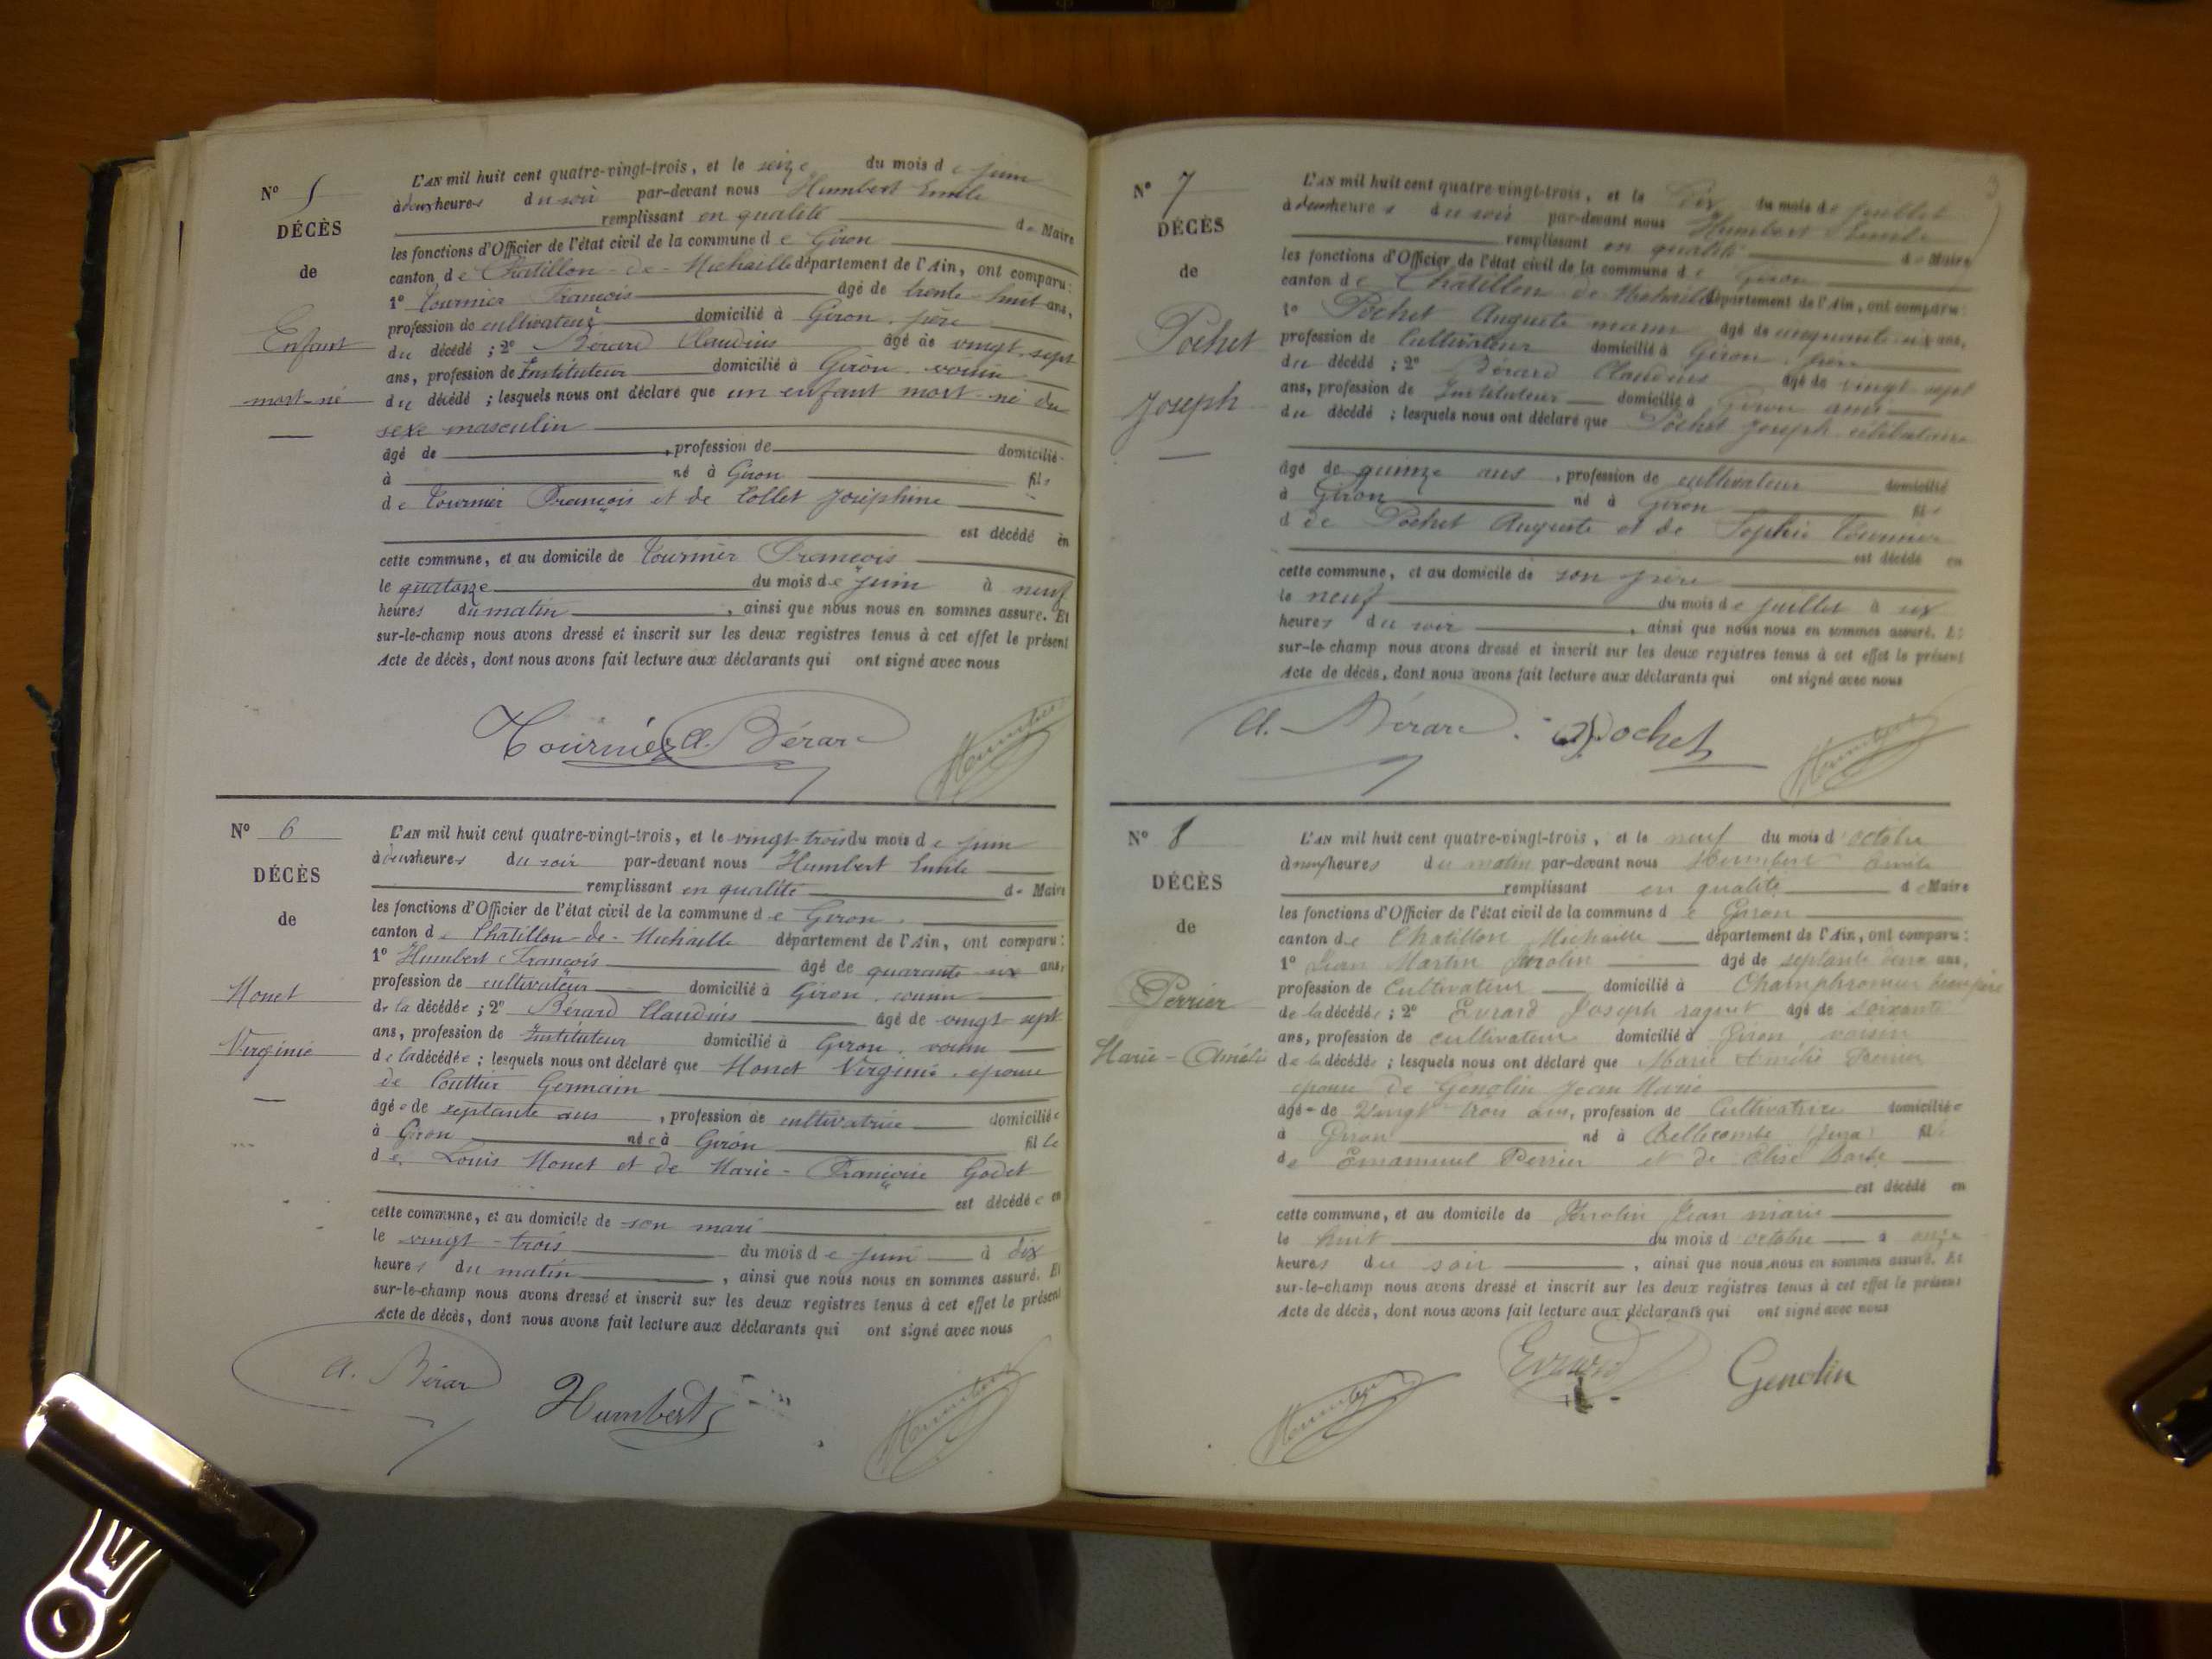 N° 5
DÉCÈS
de
Enfant
mort-né
L'AN mil huit cent quatre-vingt-trois, et le seize du mois de juin
à deux heures du soir par-devant nous Humbert Emile
remplissant en qualité de Maire
les fonctions d'Officier de l'état civil de la commune de Giron
canton de Châtillon-de-Michaille département de l'Ain, ont comparu:
1° Tournier François âgé de trente-huit ans,
profession de cultivateur domicilié à Giron, père
du décédé; 2° Bérard Claudius âgé de vingt-sept
ans, profession de Instituteur domicilié à Giron, voisin
du décédé; lesquels nous ont déclaré que un enfant mort-né du
sexe masculin
âgé de , profession de domicilié
à né à Giron fils
de Tournier François et de Collet Joséphine
est décédé en
cette commune, et au domicile de Tournier François
le quatorze du mois de juin à neuf
heures du matin , ainsi que nous nous en sommes assuré. Et
sur-le-champ nous avons dressé et inscrit sur les deux registres tenus à cet effet le présent
Acte de décès, dont nous avons fait lecture aux déclarants qui ont signé avec nous
Tournier Bérard Humbert
N° 6
DÉCÈS
de
Monet
Virginie
L'AN mil huit cent quatre-vingt-trois, et le vingt-trois du mois de juin
à deux heures du soir par-devant nous Humbert Emile
remplissant en qualité de Maire
les fonctions d'Officier de l'état civil de la commune de Giron
canton de Châtillon-de-Michaille département de l'Ain, ont comparu:
1° Humbert François âgé de quarante-six ans,
profession de cultivateur domicilié à Giron, cousin
de la décédée; 2° Bérard Claudius âgé de vingt-sept
ans, profession de Instituteur domicilié à Giron, voisin
de la décédée; lesquels nous ont déclaré que Monet Virginie, épouse
de Germain
âgée de septante ans , profession de cultivatrice domiciliée
à Giron née à Giron fille
de Louis Monet et de Marie-Françoise Godet
est décédée en
cette commune, et au domicile de son mari
le vingt-trois du mois de juin à dix
heures du matin , ainsi que nous nous en sommes assuré. Et
sur-le-champ nous avons dressé et inscrit sur les deux registres tenus à cet effet le présent
Acte de décès, dont nous avons fait lecture aux déclarants qui ont signé avec nous
Bérard Humbert Humbert
3
N° 7
DÉCÈS
de
Pochet
Joseph
L'AN mil huit cent quatre-vingt-trois, et le dix du mois de juillet
à deux heures du soir par-devant nous Humbert Emile
remplissant en qualité de Maire
les fonctions d'Officier de l'état civil de la commune de Giron
canton de Châtillon de Michaille département de l'Ain, ont comparu:
1° Pochet Auguste marin âgé de cinquante-six ans,
profession de Cultivateur domicilié à Giron père
du décédé; 2° Bérard Claudius âgé de vingt sept
ans, profession de Instituteur domicilié à Giron ami
du décédé; lesquels nous ont déclaré que Pochet Joseph, célibataire
âgé de quinze ans , profession de cultivateur domicilié
à Giron né à Giron fils
d de Pochet Auguste et de Sophie Tournier
est décédé en
cette commune, et au domicile de son père
le neuf du mois de juillet à six
heures du soir , ainsi que nous nous en sommes assuré. Et
sur-le-champ nous avons dressé et inscrit sur les deux registres tenus à cet effet le présent
Acte de décès, dont nous avons fait lecture aux déclarants qui ont signé avec nous
Bérard Pochet Humbert
N° 8
DÉCÈS
de
Perrier
Marie-Amélie
L'AN mil huit cent quatre-vingt-trois, et le neuf du mois d'octobre
à neuf heures du matin par-devant nous Humbert Emile
remplissant en qualité de Maire
les fonctions d'Officier de l'état civil de la commune de Giron
canton de Chatillon Michaille département de l'Ain, ont comparu:
1° Jean Martin Genolin âgé de septante ans,
profession de Cultivateur domicilié à Champfromier beau père
de la décédée; 2° Evrard Joseph âgé de soixante
ans, profession de cultivateur domicilié à Giron voisin
de la décédée; lesquels nous ont déclaré que Marie Amélie Perrier
épouse de Genolin Jean Marie
âgée de vingt trois ans, profession de Cultivatrice domiciliée
à Giron né à Bellecombe (Jura) fille
de Emamuel Perrier et de Elise
est décédé en
cette commune, et au domicile de Genolin Jean marie
le huit du mois d'octobre à onze
heures du soir , ainsi que nous nous en sommes assuré. Et
sur-le-champ nous avons dressé et inscrit sur les deux registres tenus à cet effet le présent
Acte de décès, dont nous avons fait lecture aux déclarants qui ont signé avec nous
Humbert Evrard Genolin